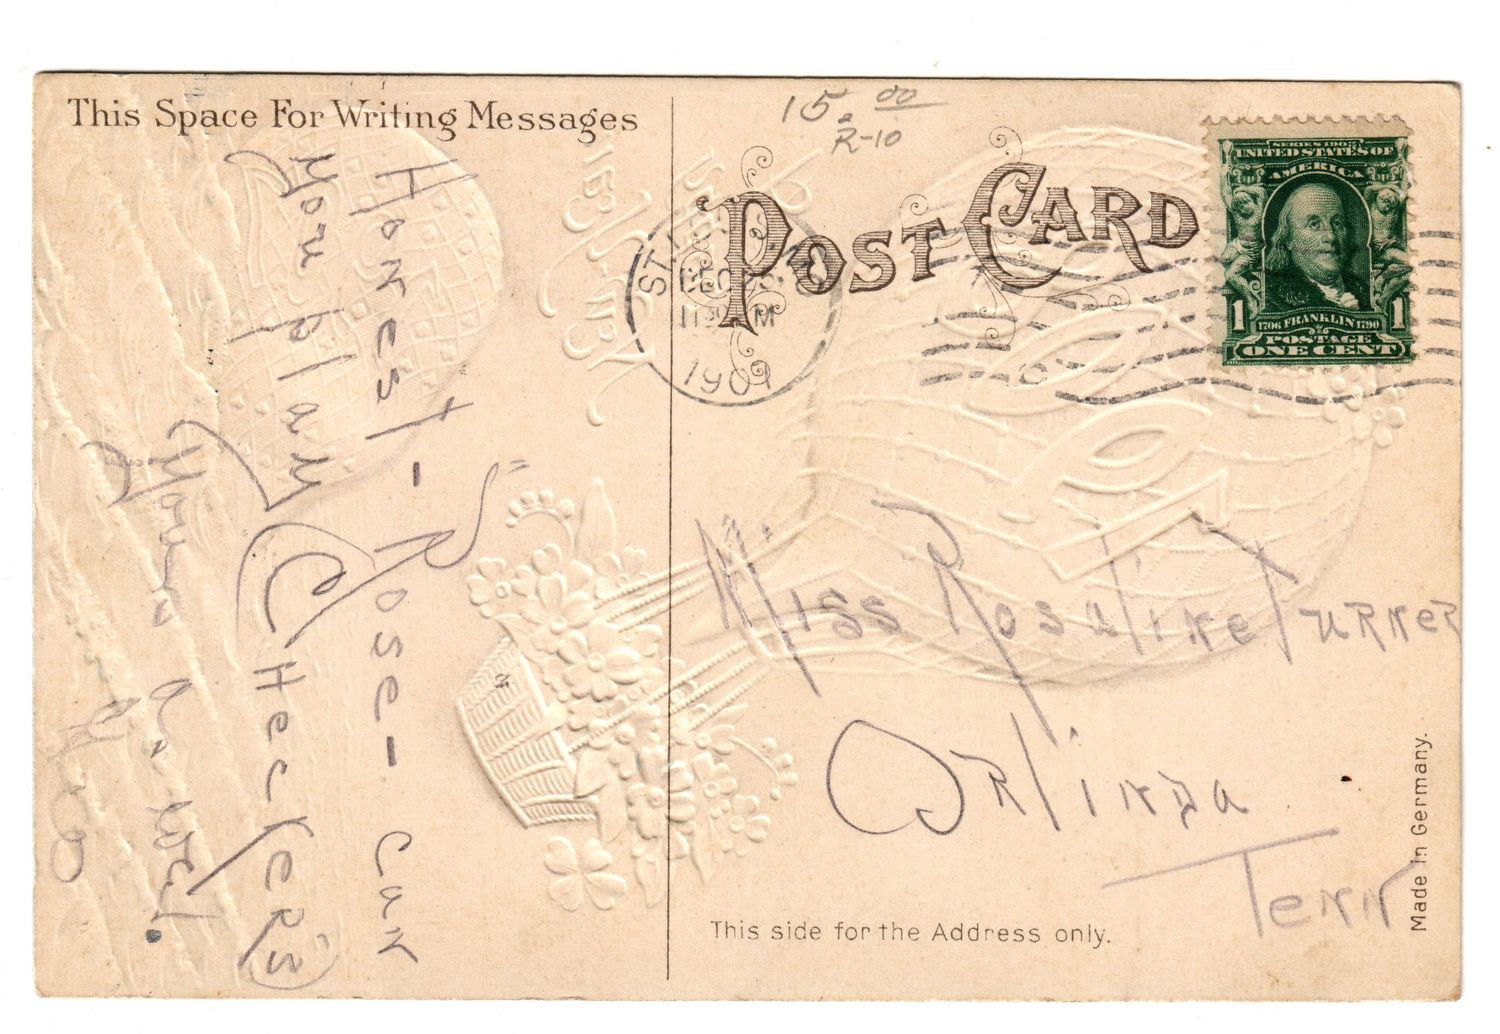 This Space For Writing Messages
15.00
R-10
POST CARD
SERIES 1902
UNITED STATES OF
AMERICA
1 1706 FRANKLIN 1790 1
POSTAGE
ONE CENT
ST. LOUIS, MO
DEC
1130 M
1907
Honest - "Rose - can
you play
Checkers
Your
Miss Rosalike Turner
Orlinda
Tenn
This side for the Address only.
Made in Germany.